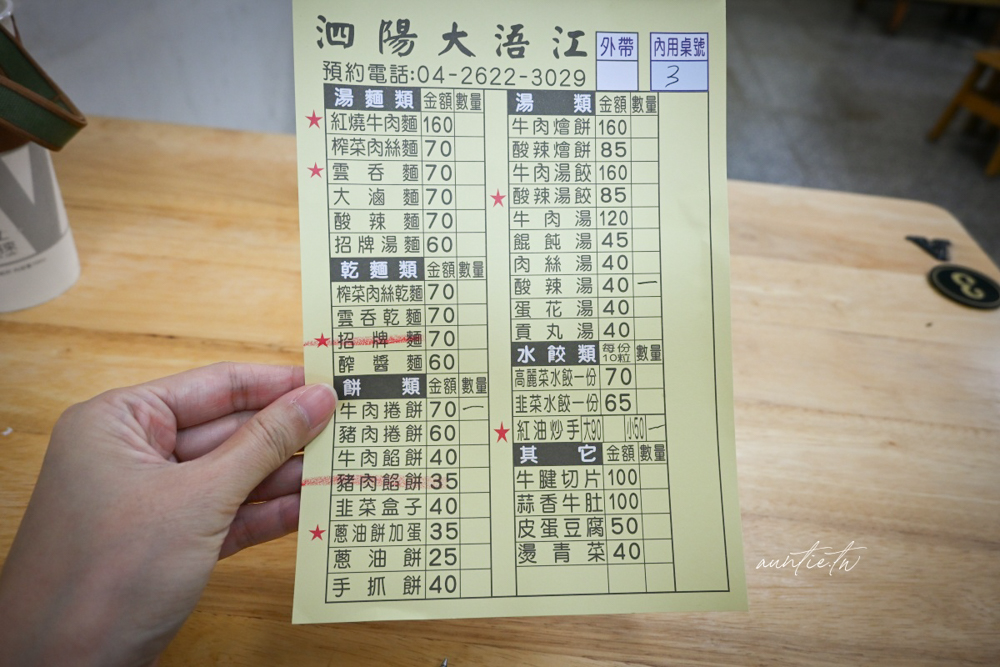 泗陽大浯江
外帶
內用桌號
3
預約電話:04-2622-3029
湯麵類 金額 數量
紅燒牛肉麵 160
榨菜肉絲麵 70
雲吞麵 70
大滷麵 70
酸辣麵 70
招牌湯麵 60
乾麵類 金額 數量
榨菜肉絲乾麵 70
雲吞乾麵 70
招牌麵 70
醡醬麵 60
餅類 金額 數量
牛肉捲餅 70 一
豬肉捲餅 60
牛肉餡餅 40
豬肉餡餅 35
韭菜盒子 40
蔥油餅加蛋 35
蔥油餅 25
手抓餅 40
湯類 金額 數量
牛肉燴餅 160
酸辣燴餅 85
牛肉湯餃 160
酸辣湯餃 85
牛肉湯 120
餛飩湯 45
肉絲湯 40
酸辣湯 40 一
蛋花湯 40
貢丸湯 40
水餃類 每份10粒 數量
高麗菜水餃一份 70
韭菜水餃一份 65
紅油炒手 大90 小50 一
其它 金額 數量
牛腱切片 100
蒜香牛肚 100
皮蛋豆腐 50
燙青菜 40
auntie.tw